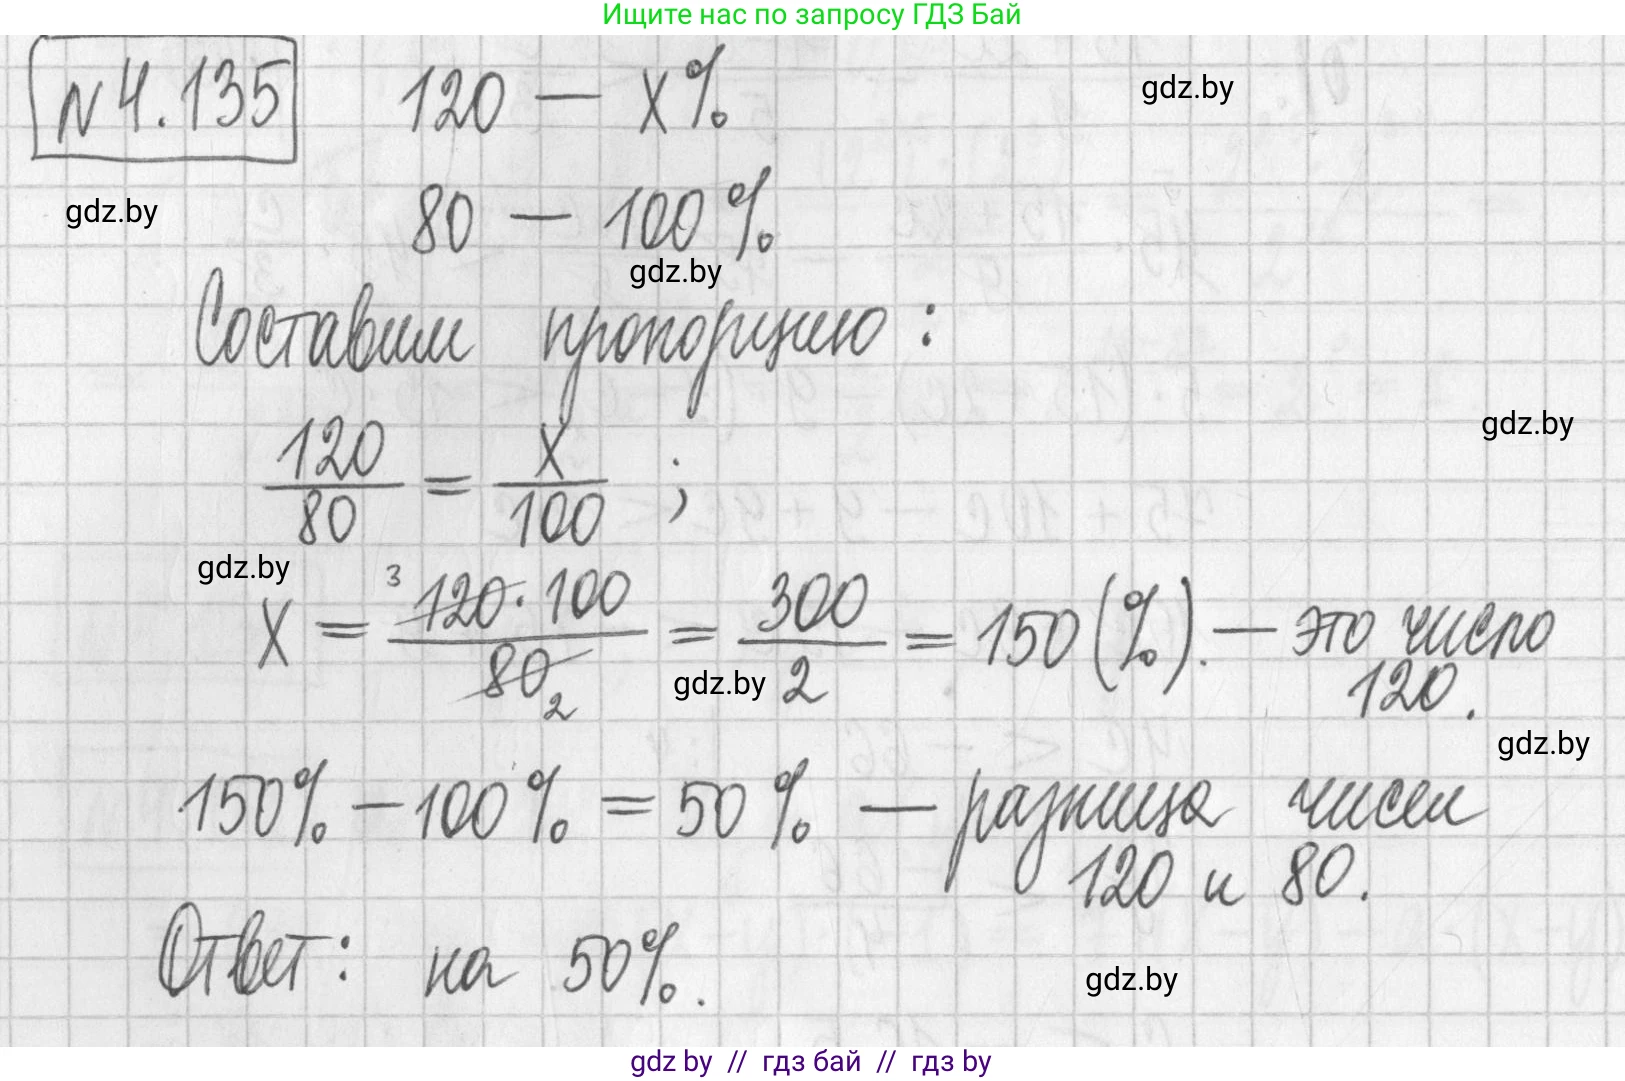 Ищите нас по запросу ГДЗ Бай
№ 4.135 120 — x%
gdz.by
gdz.by
80 — 100%
gdz.by
Составим пропорцию:
gdz.by
120/80 = x/100 ;
gdz.by
x = 3 120 · 100 / 80 2 = 300/2 = 150 (%). — это число
120.
gdz.by
gdz.by
150% − 100% = 50% — разница чисел
120 и 80.
Ответ: на 50%.
gdz.by
gdz by // гдз бай // гдз by